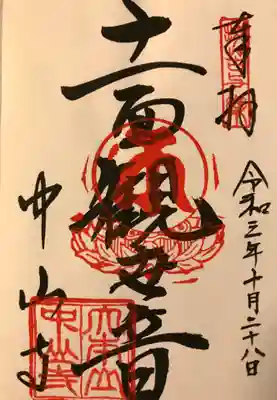 奉拝
令和三年十月二十八日
十一面観世音
中山寺